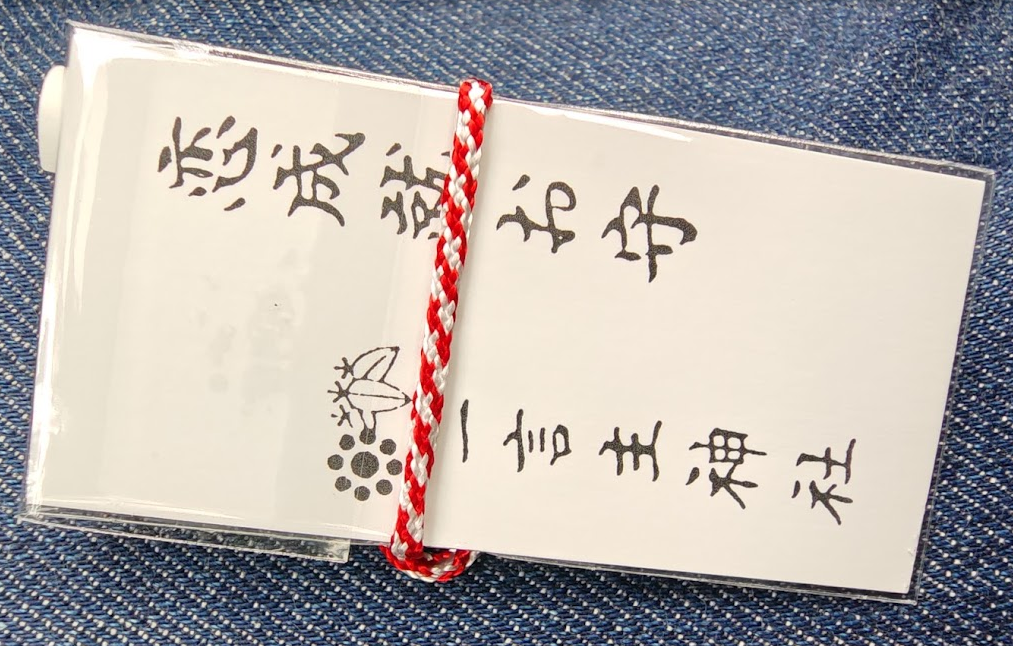 恋成就お守
一言主神社